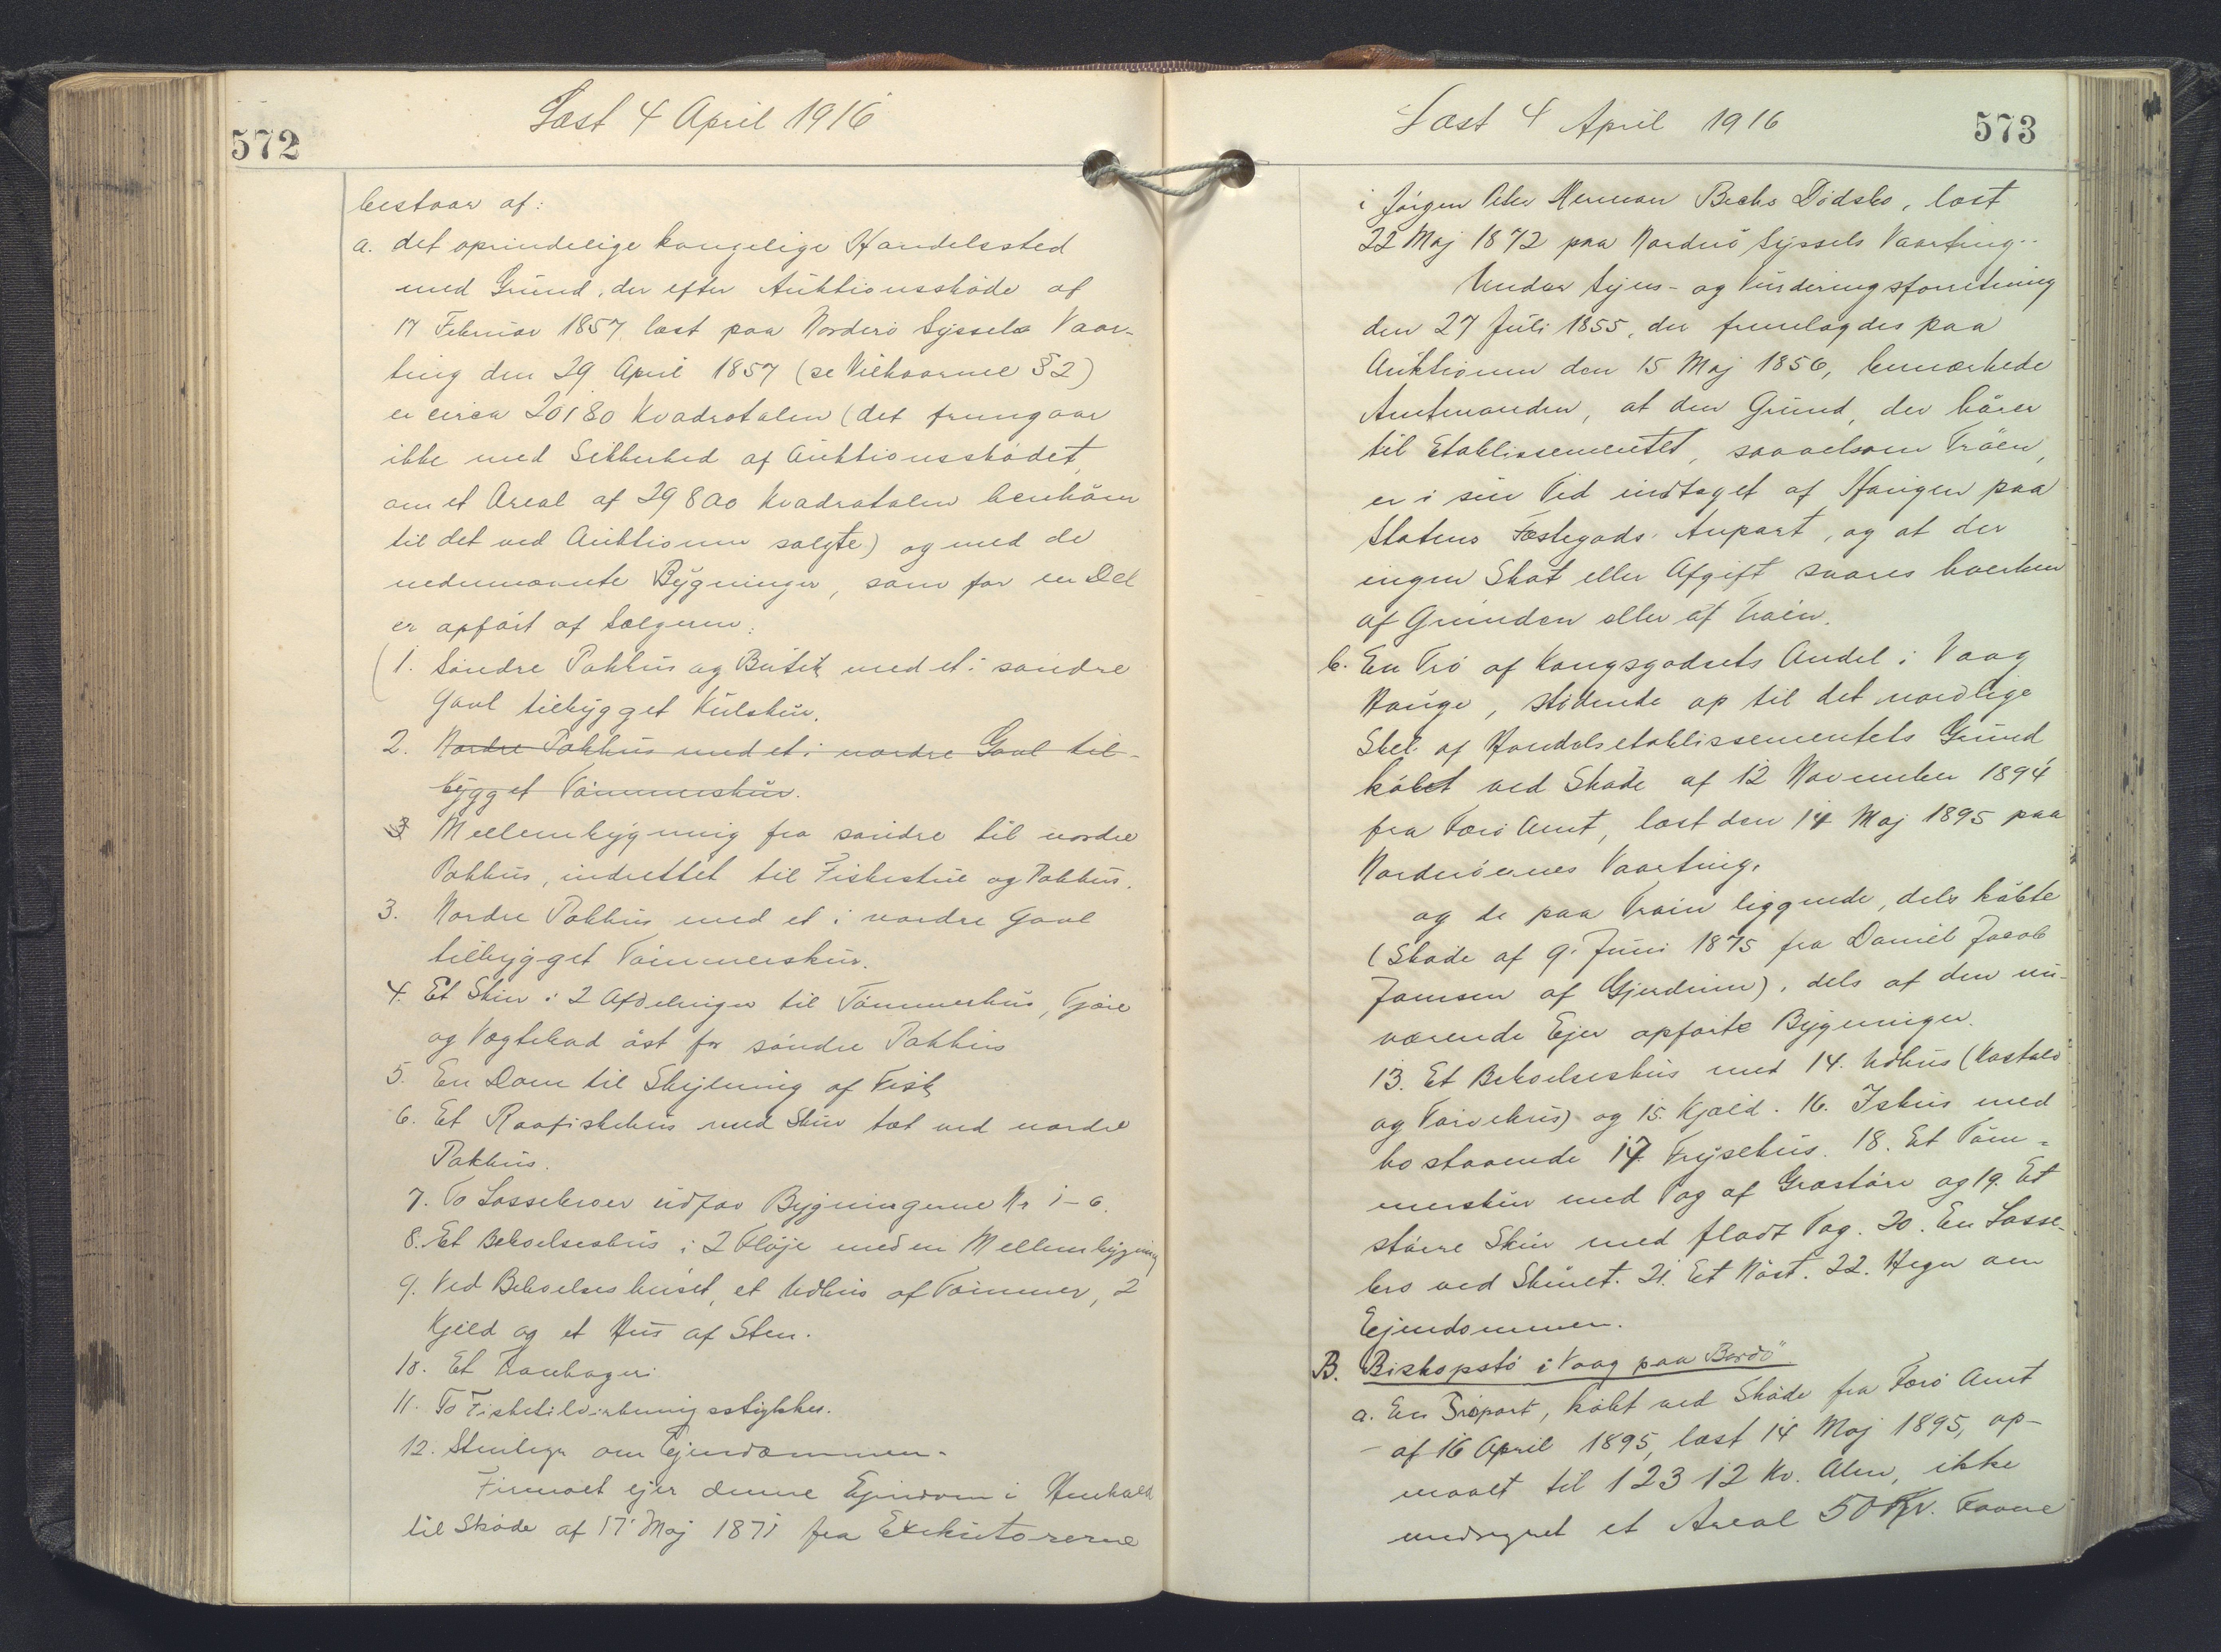 572
Læst 4 April 1916
bestaar af:
a. det oprindelige kongelige Handelssted
med Grund, der efter Auktionsskøde af
17 Februar 1857, læst paa Norderø Syssels Vaar-
ting den 29 April 1857 (se Vilkaarene § 2)
er circa 20180 Kvadratalen (det fremgaar
ikke med Sikkerhed af Auktionsskødet,
om et Areal af 29800 Kvadratalen henhører
til det ved Auktionen solgte) og med de
nedennævnte Bygninger, som for en Del
er opført af Sælgeren:
(1. Søndre Pakhus og Butik med et i søndre
Gavl tilbygget Kulskur.
2. Nordre Pakhus med et i nordre Gavl til-
bygget Tømmerskur.
3 Mellembygning fra søndre til nordre
Pakhus, indrettet til Fiskestue og Pakhus.
3. Nordre Pakhus med et i nordre Gavl
tilbygget Tømmerskur.
4. Et Skur i 2 Afdelinger til Tømmerhus, Tjære
og Vægtebod øst for søndre Pakhus
5. En Dam til Skylning af Fisk
6. Et Raafiskehus med Skur tæt ved nordre
Pakhus.
7. To Lossebroer udfor Bygningerne Nr 1-6.
8. Et Beboelseshus i 2 Fløje med en Mellembygning
9. Ved Beboelseshuset, et Udhus af Tømmer, 2
Kjeld og et Hus af Sten.
10. Et Tranbageri
11. To Fisketilvirkningsstykker.
12. Stenhegn om Ejendommen.
Firmaet ejer denne Ejendom i Henhold
til Skøde af 17 Maj 1871 fra Exekutorerne
Læst 4 April 1916
573
i Jørgen Peter Herman Bechs Dødsbo, læst
22 Maj 1872 paa Norderø Syssels Vaarting.
Under Syns- og Vurderingsforretning
den 27 Juli 1855, der fremlagdes paa
Auktionen den 15 Maj 1856, bemærkede
Amtmanden, at den Grund, der hører
til Etablissementet, saavelsom Trøen,
er i sin Tid indtaget af Haugen paa
Statens Fæstegods' Anpart, og at der
ingen Skat eller Afgift svares hverken
af Grunden eller af Trøen.
b. En Trø af Kongsgodsets Andel i Vaag
Hauge, stødende op til det nordlige
Skel af Handelsetablissementets Grund
købt ved Skøde af 12 November 1894
fra Færø Amt, læst den 14 Maj 1895 paa
Norderøernes Vaarting.
og de paa Trøen liggende, dels købte
(Skøde af 9. Juni 1875 fra Daniel Jacob
Joensen af Gjerdum), dels af den nu-
værende Ejer opførte Bygninger.
13. Et Beboelseshus med 14. Udhus (Kostald
og Tørvehus) og 15. Kjeld. 16. Ishus med
hosstaaende 17 Frysehus. 18. Et Tøm-
merskur med Tag af Græstørv og 19. Et
større Skur med fladt Tag. 20. En Losse-
bro ved Skuret. 21. Et Nøst. 22. Hegn om
Ejendommen.
B. Biskopstø i Vaag paa Bordø
a. En Trøpart, købt ved Skøde fra Færø Amt
af 16 April 1895, læst 14 Maj 1895, op-
maalt til 12312 Kv. Alen, ikke
medregnet et Areal 50 Kv. Favne